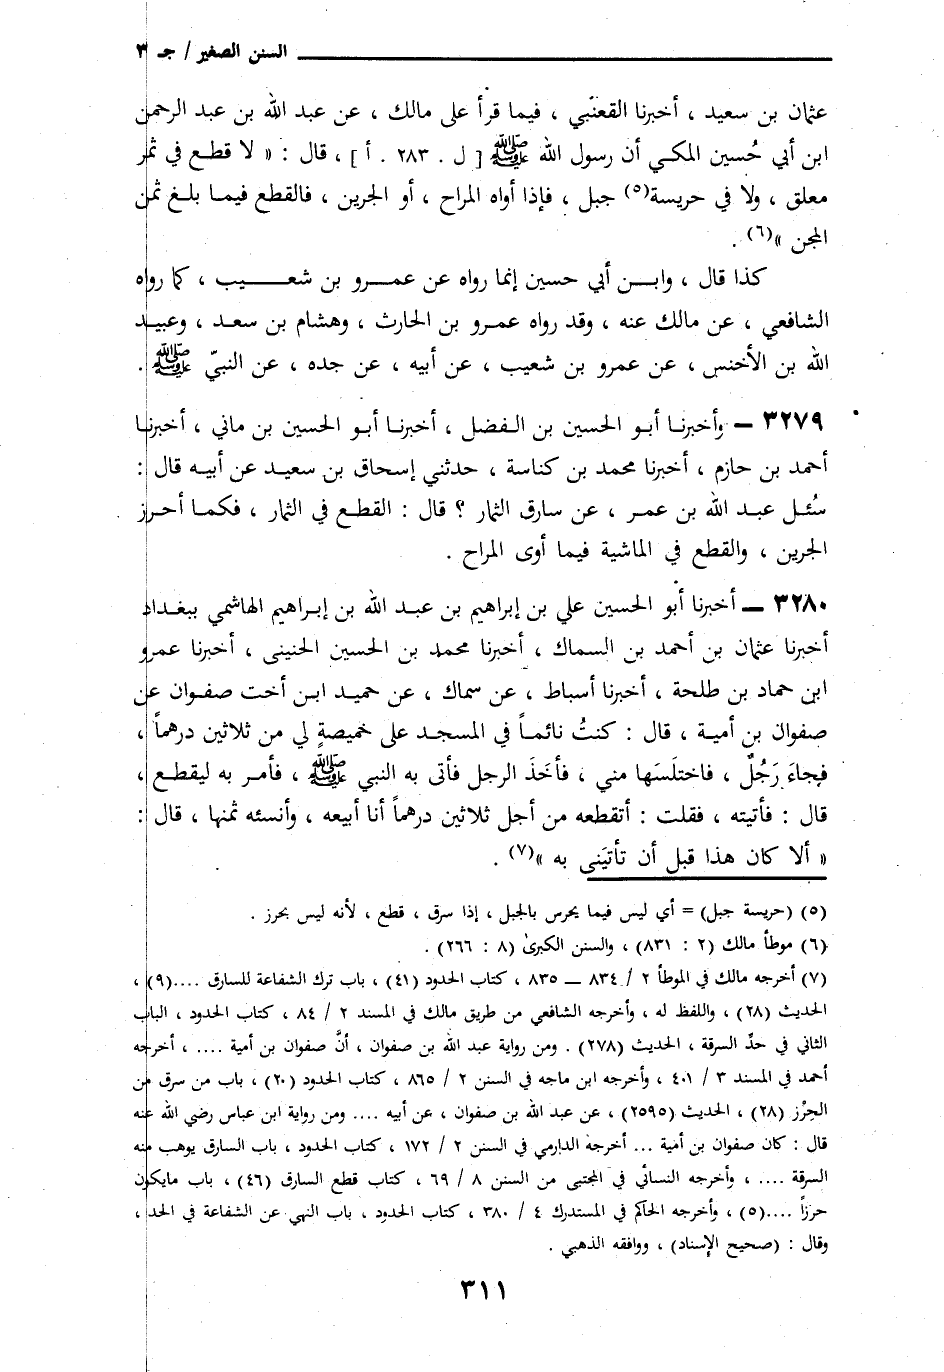 السنن الصغير / جـ ٣
عثمان بن سعيد ، أخبرنا القعنّبي ، فيما قرأ على مالك ، عن عبد الله بن عبد الرحمن
ابن أبي حُسين المكي أن رسول الله ﷺ [ ل . ٢٨٣ . أ ] ، قال : « لا قطع في ثمر
معلق ، ولا في حريسة(٥) جبل ، فإذا أواه المراح ، أو الجرين ، فالقطع فيما بلغ ثمن
المجن »(٦) .
كذا قال ، وابن أبي حسين إنما رواه عن عمرو بن شعيب ، كما رواه
الشافعي ، عن مالك عنه ، وقد رواه عمرو بن الحارث ، وهشام بن سعد ، وعبيد
الله بن الأخنس ، عن عمرو بن شعيب ، عن أبيه ، عن جده ، عن النبيّ ﷺ .
٣٢٧٩ — وأخبرنا أبو الحسين بن الفضل ، أخبرنا أبو الحسين بن ماني ، أخبرنا
أحمد بن حازم ، أخبرنا محمد بن كناسة ، حدثني إسحاق بن سعيد عن أبيه قال :
سُئل عبد الله بن عمر ، عن سارق الثمار ؟ قال : القطع في الثمار ، فكما أحرز
الجرين ، والقطع في الماشية فيما أوى المراح .
٣٢٨٠ — أخبرنا أبو الحسين علي بن إبراهيم بن عبد الله بن إبراهيم الهاشمي ببغداد
أخبرنا عثمان بن أحمد بن السماك ، أخبرنا محمد بن الحسين الحنيني ، أخبرنا عمرو
ابن حماد بن طلحة ، أخبرنا أسباط ، عن سماك ، عن حميد ابن أخت صفوان عن
صفوان بن أمية ، قال : كنتُ نائماً في المسجد على خميصةٍ لي من ثلاثين درهماً ،
فجاءَ رَجُلٌ ، فاختلَسَها مني ، فأخَذَ الرجل فأتى به النبي ﷺ ، فأمر به ليقطع ،
قال : فأتيته ، فقلت : أتقطعه من أجل ثلاثين درهماً أنا أبيعه ، وأنسئه ثمنها ، قال :
« ألا كان هذا قبل أن تأتيَنى به »(٧) .
(٥) (حريسة جبل) = أي ليس فيما يحرس بالجبل ، إذا سرق ، قطع ، لأنه ليس بحرز .
(٦) موطأ مالك (٢ : ٨٣١) ، والسنن الكبرىٰ (٨ : ٢٦٦) .
(٧) أخرجه مالك في الموطأ ٢ / ٨٣٤ — ٨٣٥ ، كتاب الحدود (٤١) ، باب ترك الشفاعة للسارق ....(٩) ،
الحديث (٢٨) ، واللفظ له ، وأخرجه الشافعي من طريق مالك في المسند ٢ / ٨٤ ، كتاب الحدود ، الباب
الثاني في حدِّ السرقة ، الحديث (٢٧٨) . ومن رواية عبد الله بن صفوان ، أنَّ صفوان بن أمية .... ، أخرجه
أحمد في المسند ٣ / ٤٠١ ، وأخرجه ابن ماجه في السنن ٢ / ٨٦٥ ، كتاب الحدود (٢٠) ، باب من سرق من
الحِرْز (٢٨) ، الحديث (٢٥٩٥) ، عن عبد الله بن صفوان ، عن أبيه .... ومن رواية ابن عباس رضي الله عنه
قال : كان صفوان بن أمية ... أخرجه الدارمي في السنن ٢ / ١٧٢ ، كتاب الحدود ، باب السارق يوهب منه
السرقة .... ، وأخرجه النسائي في المجتبى من السنن ٨ / ٦٩ ، كتاب قطع السارق (٤٦) ، باب مايكون
حرزاً ....(٥) ، وأخرجه الحاكم في المستدرك ٤ / ٣٨٠ ، كتاب الحدود ، باب النهي عن الشفاعة في الحد ،
وقال : (صحيح الإسناد) ، ووافقه الذهبي .
٣١١